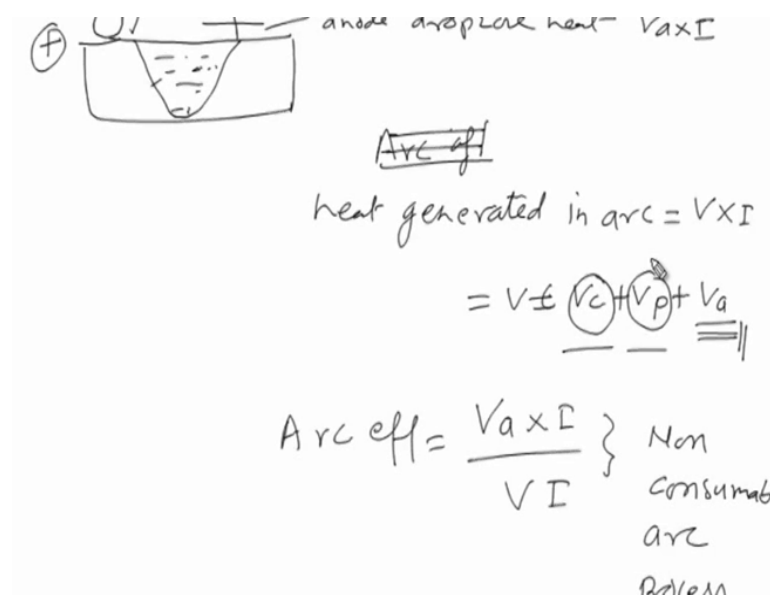 + anode drop zone heat Va x I
Arc eff
heat generated in arc = V x I
= V = Vc + Vp + Va
Arc eff = Va x I / V I } Non
consumab
arc